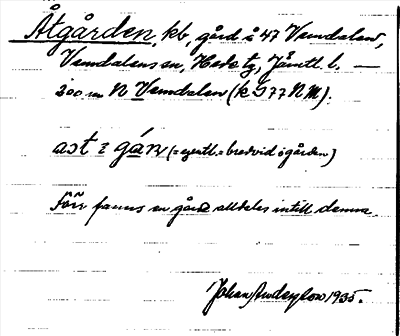 Åtgården, kb, gård å 47 Vemdalen,
Vemdalens sn, Hede tg, Jämtl. l. —
200 m N Vemdalen (k G77 NM).
(= egentl. = bredvid gården)
Förr fanns en gård alldeles intill denna.
Johan 1935.